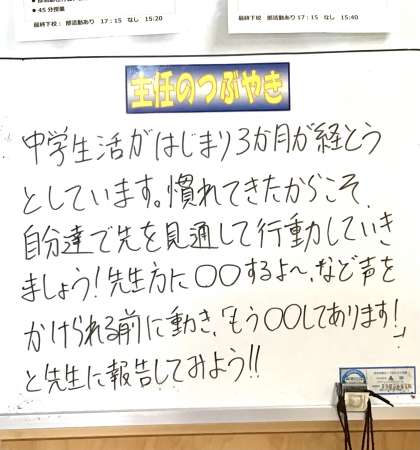 • 45分授業
最終下校：部活動あり 17：15 なし 15:20
最終下校：部活動あり 17：15 なし 15:40
主任のつぶやき
中学生活がはじまり3か月が経とう
としています。慣れてきたからこそ、
自分達で先を見通して行動していき
ましょう！先生方に〇〇するよ〜、など声を
かけられる前に動き、「もう〇〇してあります！」
と先生に報告してみよう!!